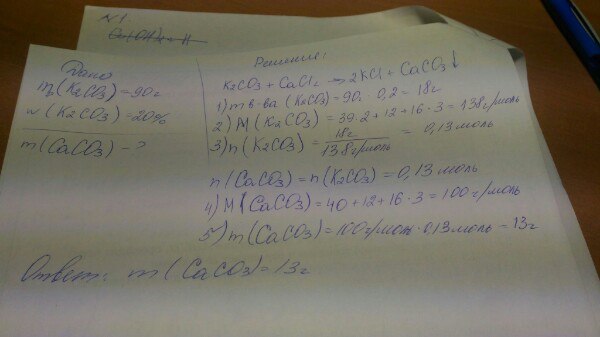 N1
Дано
mр(K2CO3)=90г
w(K2CO3)=20%
m(CaCO3) - ?
Решение:
K2CO3 + CaCl2 → 2KCl + CaCO3↓
1) m в-ва (K2CO3) = 90г · 0,2 = 18г
2) M(K2CO3) = 39·2+12+16·3 = 138г/моль
3) n(K2CO3) = 18г / 138г/моль = 0,13моль
n(CaCO3) = n(K2CO3) = 0,13моль
4) M(CaCO3) = 40+12+16·3 = 100г/моль
5) m(CaCO3) = 100г/моль · 0,13моль = 13г
Ответ: m(CaCO3) = 13г